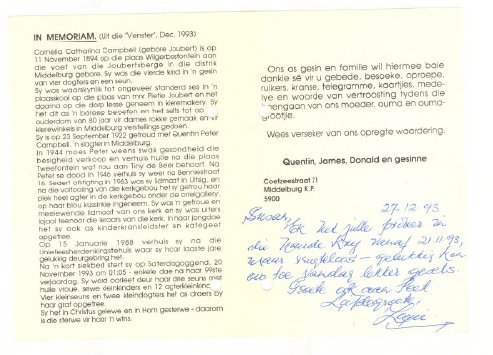 IN MEMORIAM. (Uit die "Venster", Dec. 1993)
Cornelia Catharina Campbell (gebore Joubert) is op
11 November 1894 op die plaas Wilgerbosfontein aan
die voet van die Joubertsberge in die distrik
Middelburg gebore. Sy was die vierde kind in 'n gesin
van vier dogters en een seun.
Sy was waarskynlik tot ongeveer standerd ses in 'n
plaasskool op die plaas van mnr Pietie Joubert en het
daarna op die dorp lesse geneem in kleremakery. Sy
het dit as 'n beroep beoefen en het selfs tot op
ouderdom van 80 jaar vir dames rokke gemaak en vir
klerewinkels in Middelburg verstellings gedoen.
Sy is op 23 September 1922 getroud met Quentin Peter
Campbell, 'n slagter in Middelburg.
In 1944 moes Peter weens swak gesondheid die
besigheid verkoop en verhuis hulle na die plaas
Tweefontein wat nou aan Tiny de Beer behoort. Na
Peter se dood in 1946 verhuis sy weer na Bennie straat
16. Sedert stigting in 1963 was sy lidmaat in Uitsig, en
na die voltooiing van die kerkgebou het sy getrou haar
plek heel agter in die kerkgebou onder die orrelgallery,
op haar blou kussinkie ingeneem. Sy was 'n getroue en
meelewende lidmaat van ons kerk en sy was uiters
lojaal teenoor die leraars van die kerk. In haar jongdae
het sy ook as kinderkransleidster en kategeet
opgetree.
Op 15 Januarie 1988 verhuis sy na die
Unitefeesherdenkingstehuis waar sy haar laaste jare
gelukkig deurgebring het.
Na 'n kort siekbed sterf sy op Saterdagoggend, 20
November 1993 om 01:05 - enkele dae na haar 99ste
verjaardag. Sy word oorleef deur haar drie seuns met
hulle vroue, sewe kleinkinders en 12 agterkleinkind.
Vier kleinseuns en twee kleindogters het as draers by
haar graf opgetree.
Sy het in Christus gelewe en in Hom gesterwe - daarom
is die sterwe vir haar 'n wins.
Ons as gesin en familie wil hiermee baie
dankie sê vir u gebede, besoeke, oproepe,
ruikers, kranse, telegramme, kaartjies, mede-
lye en woorde van vertroosting tydens die
heengaan van ons moeder, ouma en ouma-
grootjie.
Wees verseker van ons opregte waardering.
Quentin, James, Donald en gesinne
Coetzeestraat 71
Middelburg K.P.
5900
27.12.93
Ek het julle
die vanaf 21.11.93,
gelukkig
toe vandag lekker gesels.
ook
Liefdegroete,